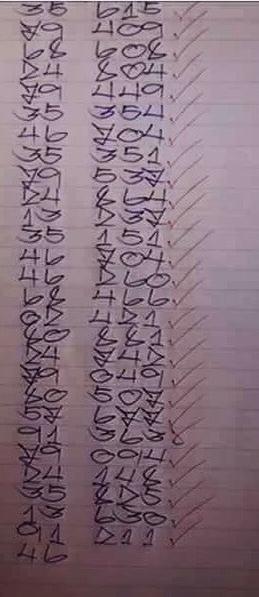 35 615 ✓
79 409 ✓
68 608 ✓
24 804 ✓
79 449 ✓
35 354 ✓
46 704 ✓
35 351 ✓
79 537 ✓
24 864 ✓
13 237 ✓
35 151 ✓
46 704 ✓
46 260 ✓
68 466 ✓
02 421 ✓
80 881 ✓
24 742 ✓
79 049 ✓
20 507 ✓
57 677 ✓
91 363 ✓
79 094 ✓
24 148 ✓
35 825 ✓
13 630 ✓
01 211 ✓
46